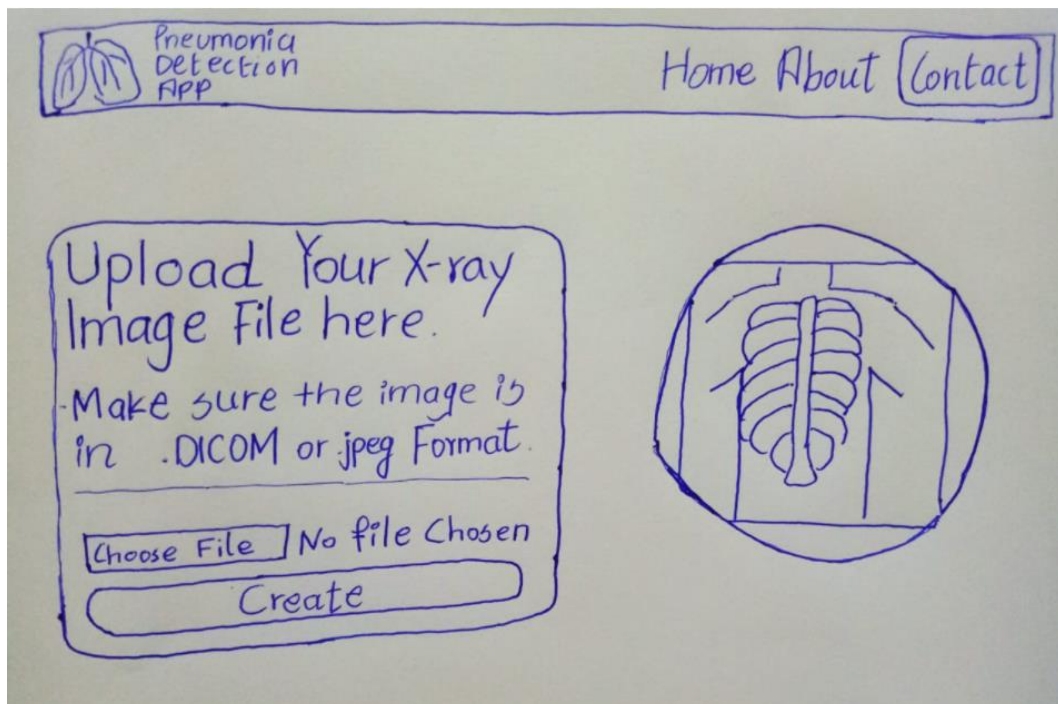 Pneumonia
Detection
App
Home About Contact
Upload Your X-ray
Image File here.
Make sure the image is
in .DICOM or .jpeg Format.
Choose File No file Chosen
Create